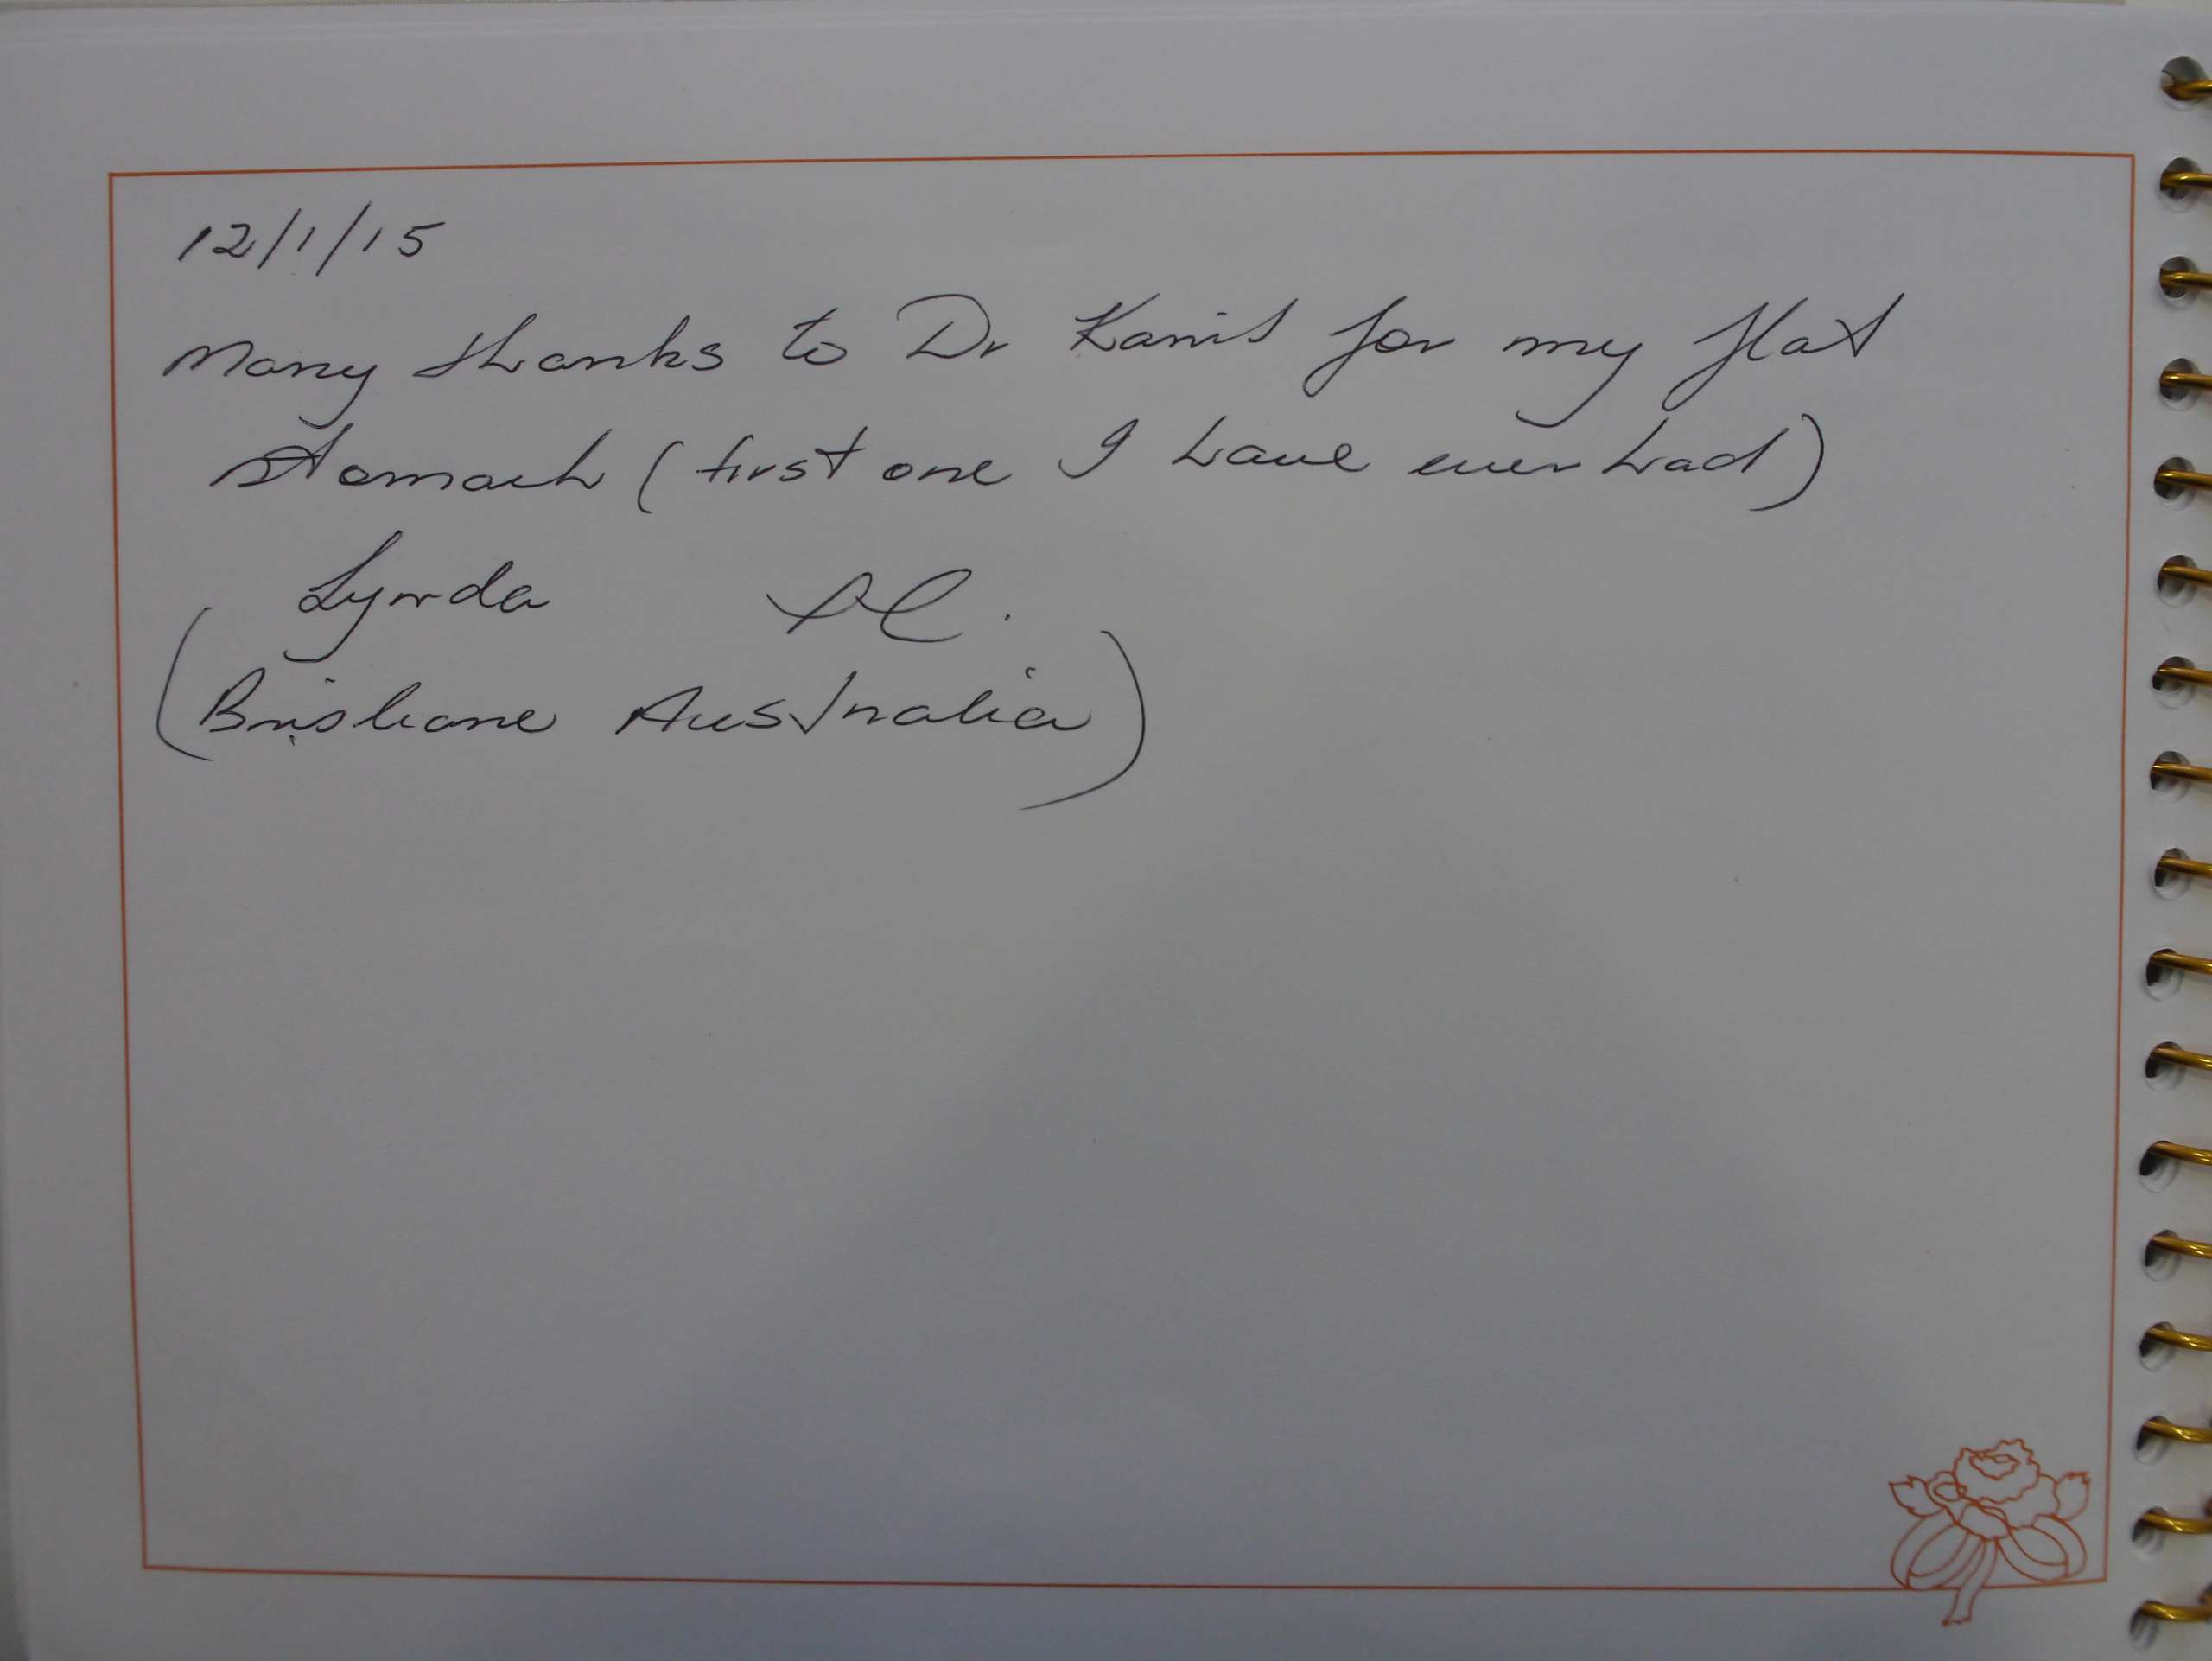 12/1/15
Many thanks to Dr Kanit for my flat
stomach (first one I have ever had)
Lynda
(Brisbane Australia)